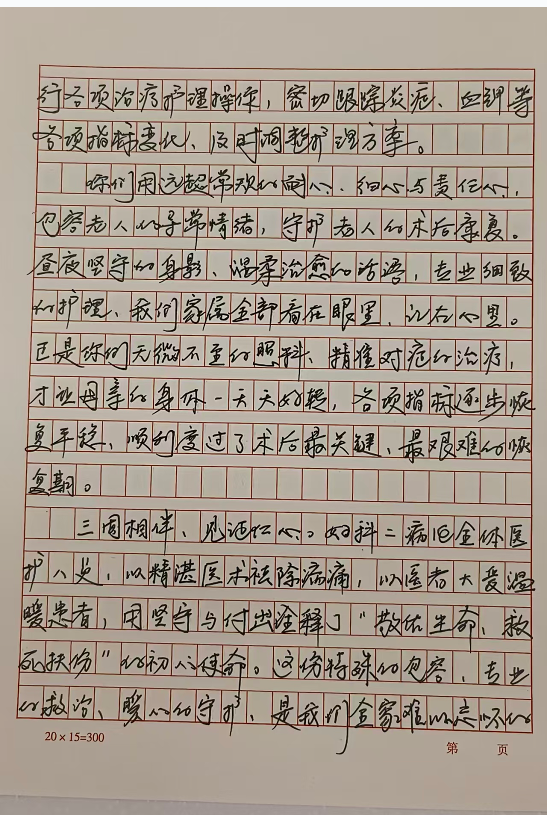 行各项治疗护理操作，密切跟踪炎症、血钾等
各项指标变化、及时调整护理方案。
你们用远超常规的耐心、细心与责任心，
包容老人的异常情绪，守护老人的术后康复。
昼夜坚守的身影、温柔治愈的话语，专业细致
的护理、我们家属全部看在眼里、记在心里。
正是你们无微不至的照料、精准对症的治疗，
才让母亲的身体一天天好转，各项指标逐步恢
复平稳、顺利度过了术后最关键、最艰难的恢
复期。
三周相伴、见证仁心。妇科二病区全体医
护人员，以精湛医术祛除病痛，以医者大爱温
暖患者，用坚守与付出诠释了“敬佑生命、救
死扶伤”的初心使命。这份特殊的包容，专业
的救治、暖心的守护、是我们全家难以忘怀的
20×15=300
第 页